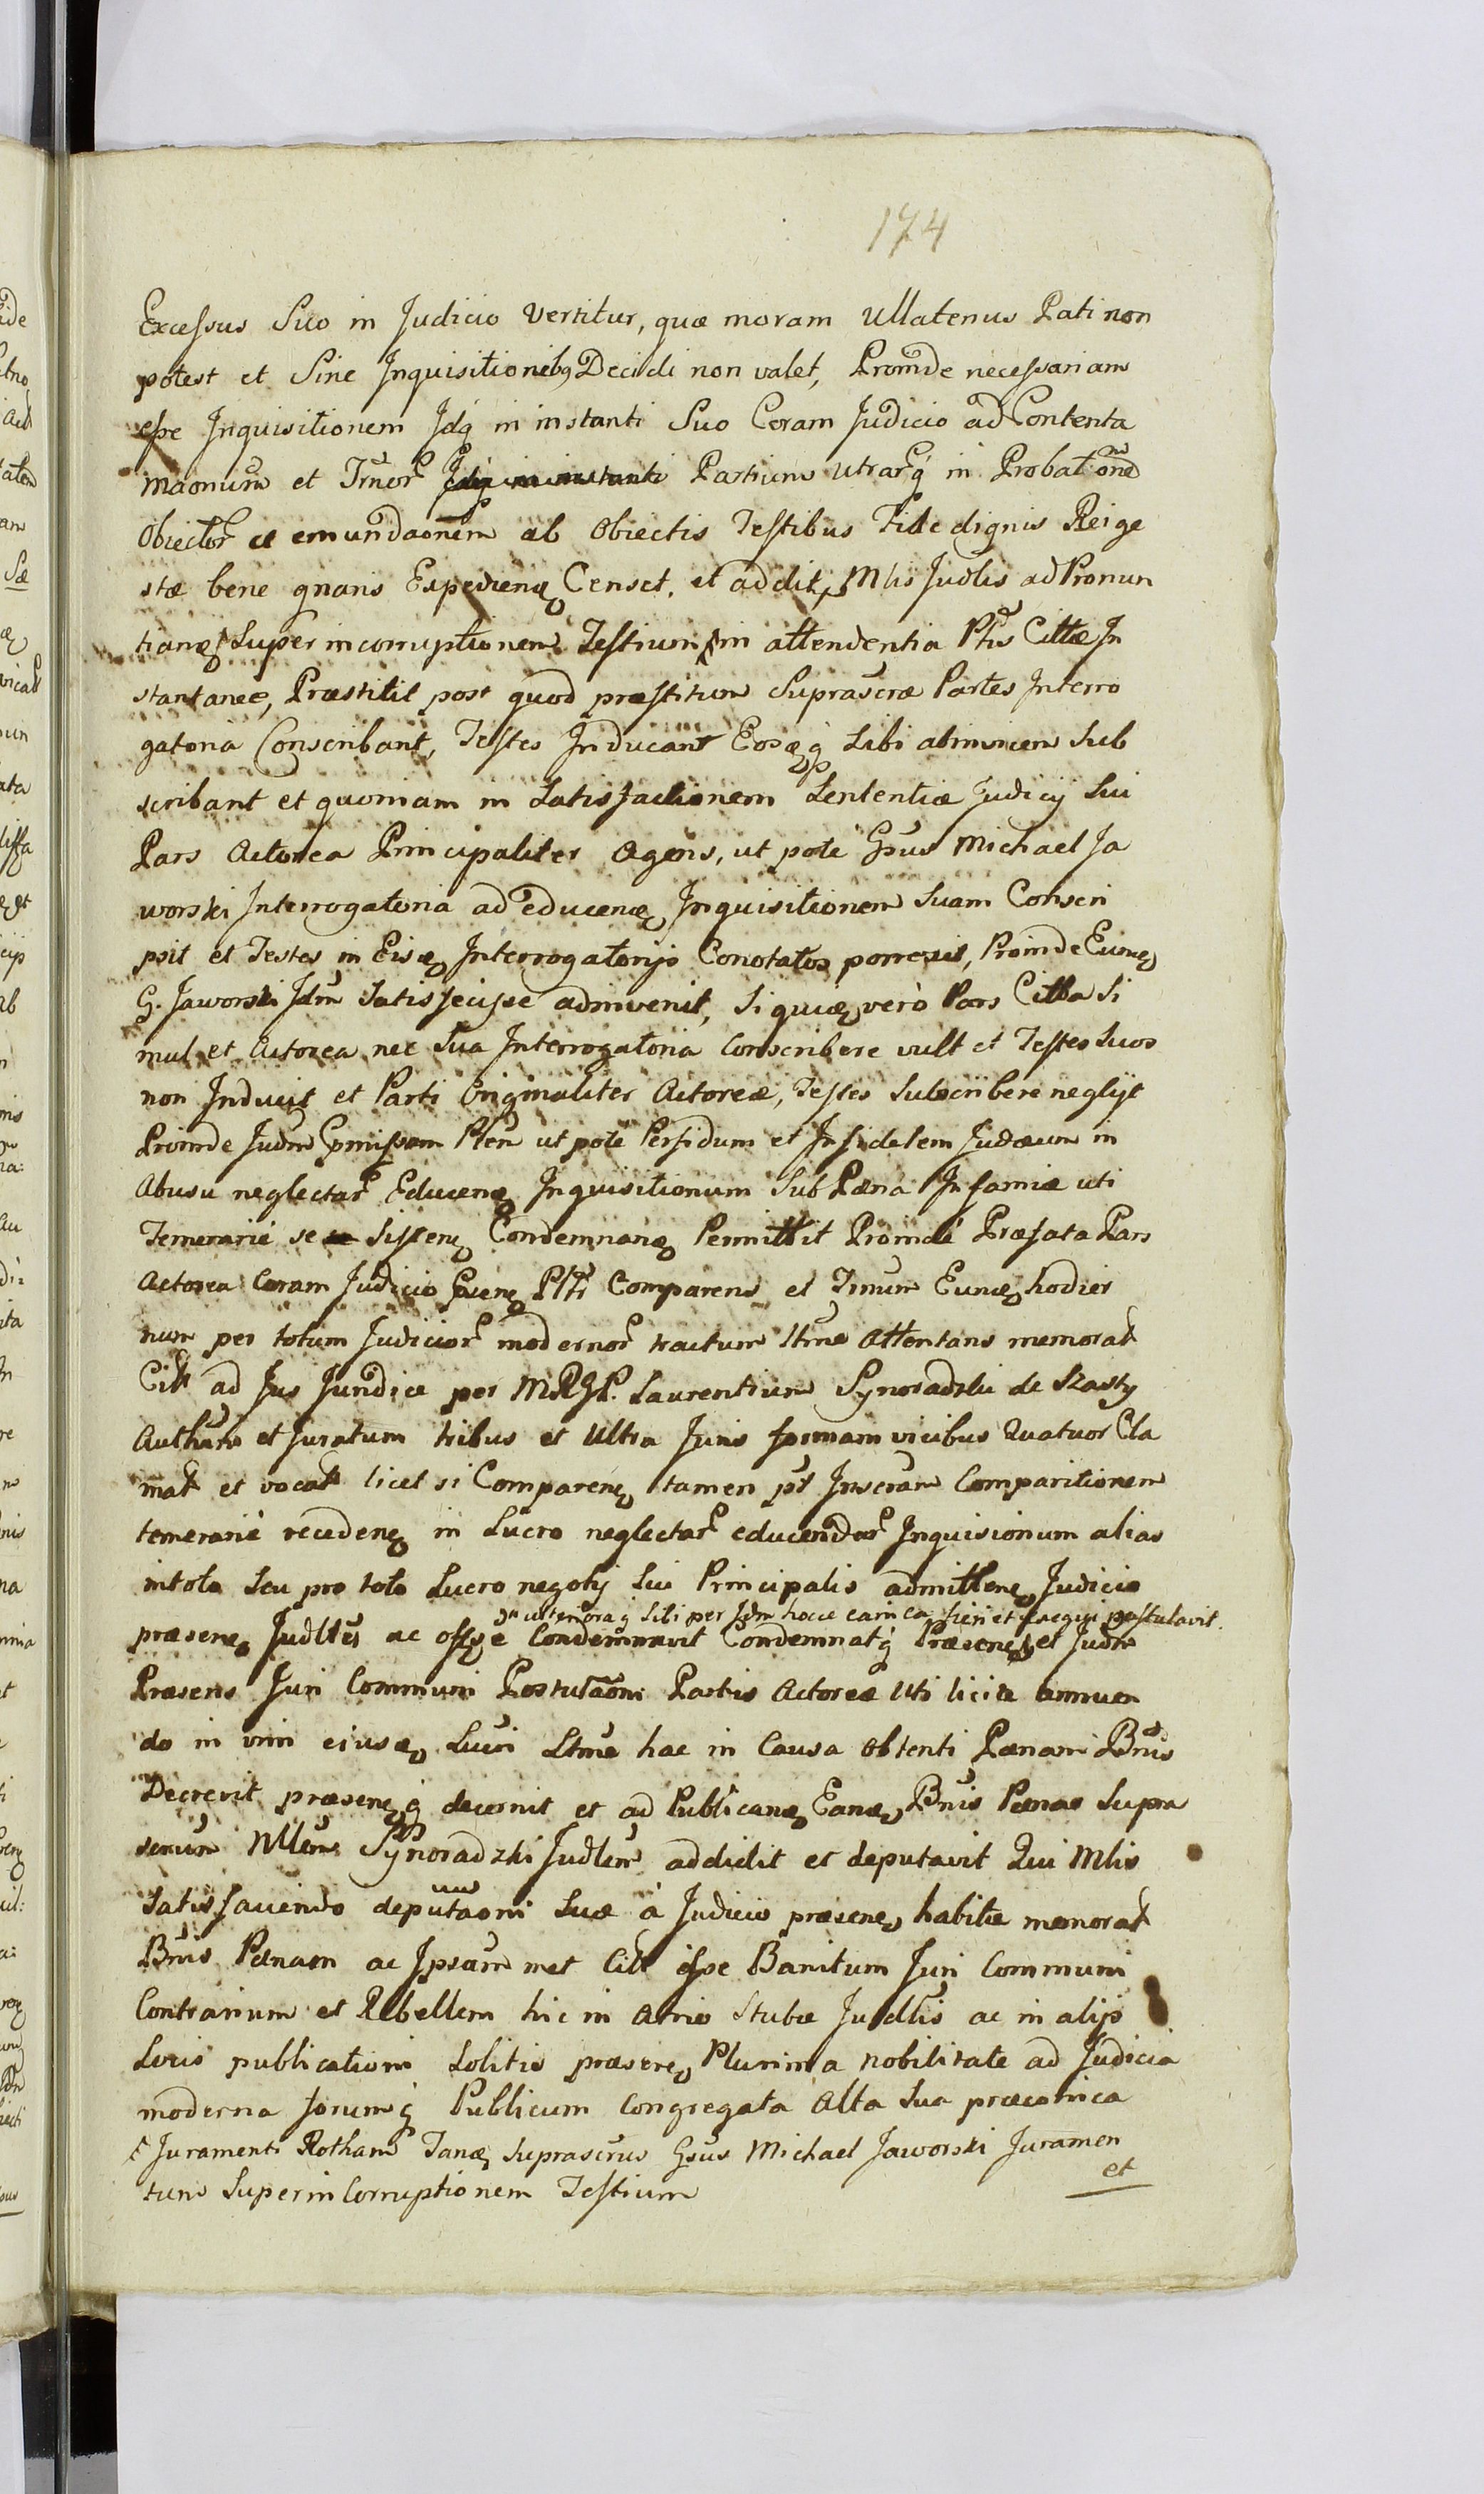 174
Excessus Suo in Judicio vertitur, quæ moram Ullatenus Pati non
potest et Sine Inquisitionibꝫ Decidi non valet, Proinde necessariam
esse Inquisitionem Idq in instanti Suo Coram Judicio ad Contenta
maonum et Trnor Idq in instanti Partium utrarq in Probatōne
Obiector et emundaonem ab Obiectis Testibus Fide dignis Rei ge
stæ bene gnaris Expediend Censet, et addit, Mlis Judlis ad Pronun
tiand Super incorruptionem Testium in attendentia Ptis Cittæ In
stantanee, Præstitit post quod præstitum Suprascræ Partes Interro
gatoria Conscribant, Testes Inducant Eosdq Sibi abinvicem Sub
scribant et quoniam in Satisfactionem Sententiæ Judicij Sui
Pars Actorea Principaliter Agens, ut pote Gsus Michael Ja
worski Interrogatoria ad educend Inquisitionem Suam Conscri
psit et Testes in Eisd Interrogatorijs Conotatos porrexit, Proinde Eund
G. Jaworski Jdm Satisfecisse adinvenit, Siquid vero Pars Citta Si
mul et Actorea nec Sua Interrogatoria Conscribere vult et Testes Suos
non Inducit et Parti Originaliter Actoreæ, Testes Subscribere negligit
Proinde Judm Pmissam Ptem ut pote Perfidum et Infidelem Judæum in
Abusu neglectar Educend Inquisitionum Sub Pæna Infamiæ uti
Temerarie se Sisten Condemnand Permittit Proinde Præfata Pars
Actorea Coram Judicio Pnti Comparens et Trnum Eund hodier
num per totum Judicior modernor tractum Ltme Attentans memorat
Citt ad Jus Juridice per MRGR. Laurentium Synoradzki de Szasty
Authum et Juratum tribus et Ultra Juris formam vicibus Quatuor Cla
mat et vocat licet si Comparend tamen pt Inscram Comparitionem
temerarie recedend in Lucro neglectar educendar Inquisionum alias
in toto Seu pro toto Lucro negotij Sui Principalis admitten Judicio
in ulterioraq Sibi per Jdm hocce eam ca fieri et exequi postulavit.
præsens Judltes ac offse Condemnavit Condemnatq Præsens et Judm
Præsens Juri Communi Postulaōni Partis Actoreæ Uti licitæ annuen
do in vim eiusd Lucri Ltme hac in Causa Obtenti Pænam Bnis
Decrevit præsensq decernit et ad Publicand Eand Bnis Pænam Supra
scrum Mlem Synoradzki Judlem addidit et deputavit Qui Mlis
Satisfaciendo deputaoni Suæ a Judicio præsen habitæ memorat
Bnis Pænam ac Ipsum met Citt esse Banitum Juri Communi
Contrarium et Rebellem hic in Atrio Stubæ Judlis ac in alijs
Locis publicationi Solitis præsen Plurima nobilitate ad Judicia
moderna forumq Publicum Congregata Alta Sua præconica
Juramenti Rotham Tand Suprascrus Gsus Michael Jaworski Juramen
tum Super in Corruptionem Testium
et